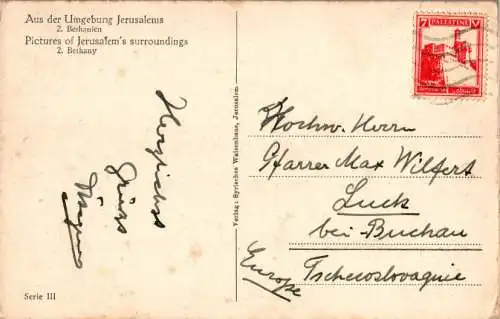 Aus der Umgebung Jerusalems
2. Bethanien
Pictures of Jerusalem's surroundings
2. Bethany
Herzlichst
grüßt
Verlag: Syrisches Waisenhaus, Jerusalem
7 PALESTINE
Hochw. Herrn
Pfarrer Max Wilfert
Luck
bei Buchau
Tschecoslovaquie
Europe
Serie III